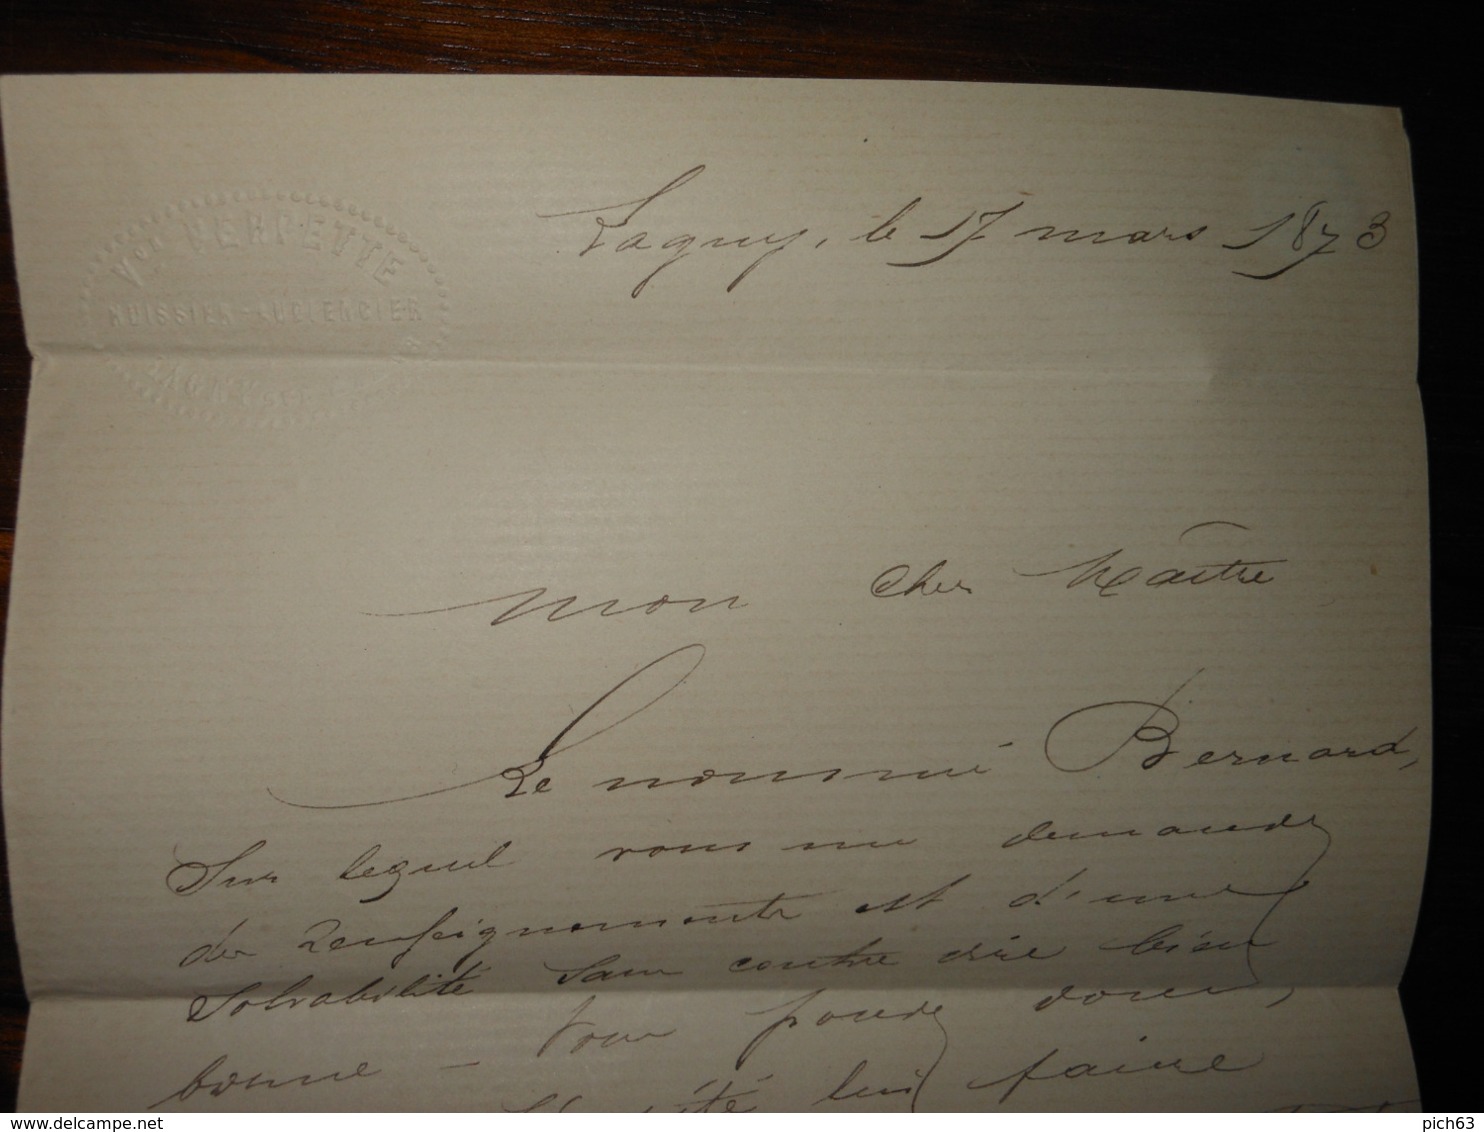 Vor PERPETTE
HUISSIER-AUDIENCIER
LAGNY
Lagny, le 17 mars 1873
Mon cher Maître
Le nommé Bernard,
Sur lequel vous me demandez
des renseignements est d'une
Solvabilité sans contre dire bien
bonne - Vous pouvez donc,
lui faire
pich63